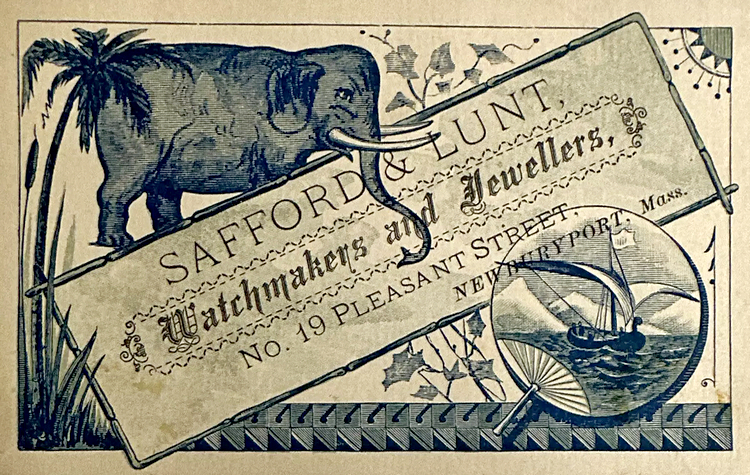 SAFFORD & LUNT,
Watchmakers and Jewellers,
No. 19 PLEASANT STREET,
NEWBURYPORT. Mass.